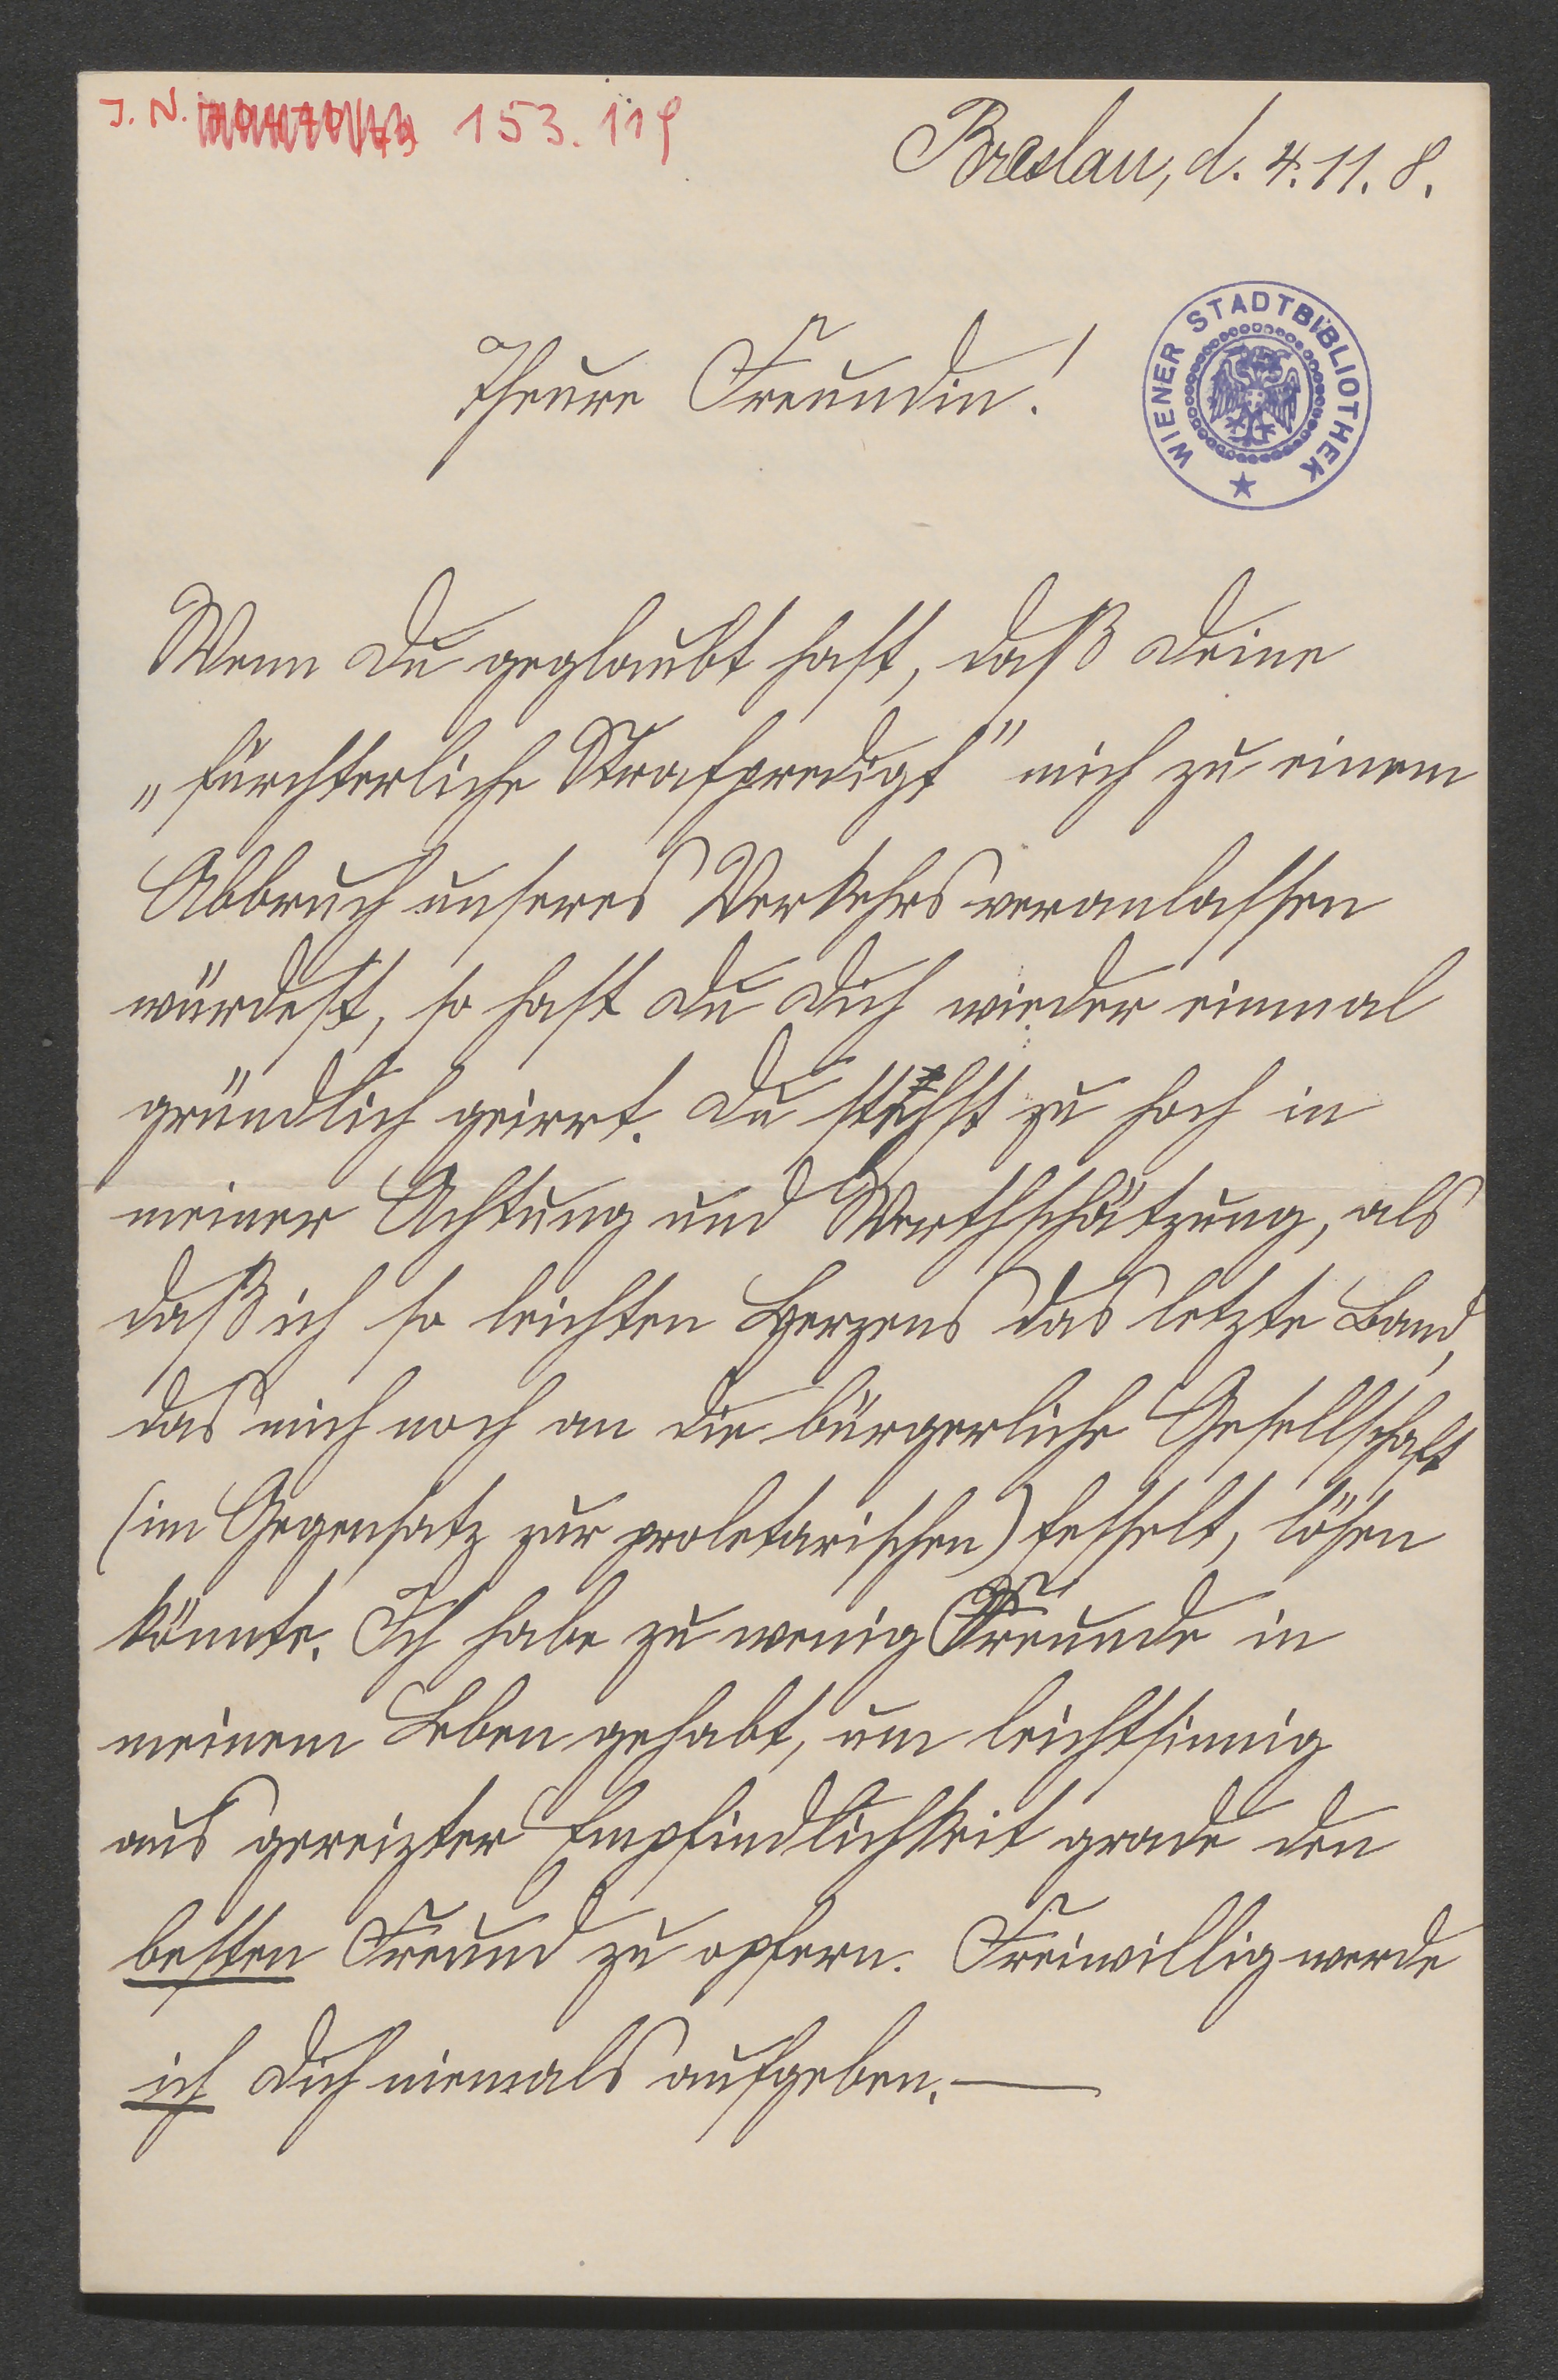 J. N. 153.119
Breslau, d. 4. 11. 8.
WIENER STADTBIBLIOTHEK
Theure Freundin!
Wenn Du geglaubt hast, daß Deine
„fürchterliche Strafpredigt" mich zu einem
Abbruch unseres Verkehrs veranlassen
würdest, so hast Du Dich wieder einmal
gründlich geirrt. Du stehst zu hoch in
meiner Achtung und Werthschätzung, als
daß ich so leichten Herzens das letzte Band,
das mich noch an die bürgerliche Gesellschaft
(im Gegensatz zur proletarischen) fesselt, lösen
könnte. Ich habe zu wenig Freunde in
meinem Leben gehabt, um leichtsinnig
aus gereizter Empfindlichkeit grade den
besten Freund zu opfern. Freiwillig werde
ich Dich niemals aufgeben. —